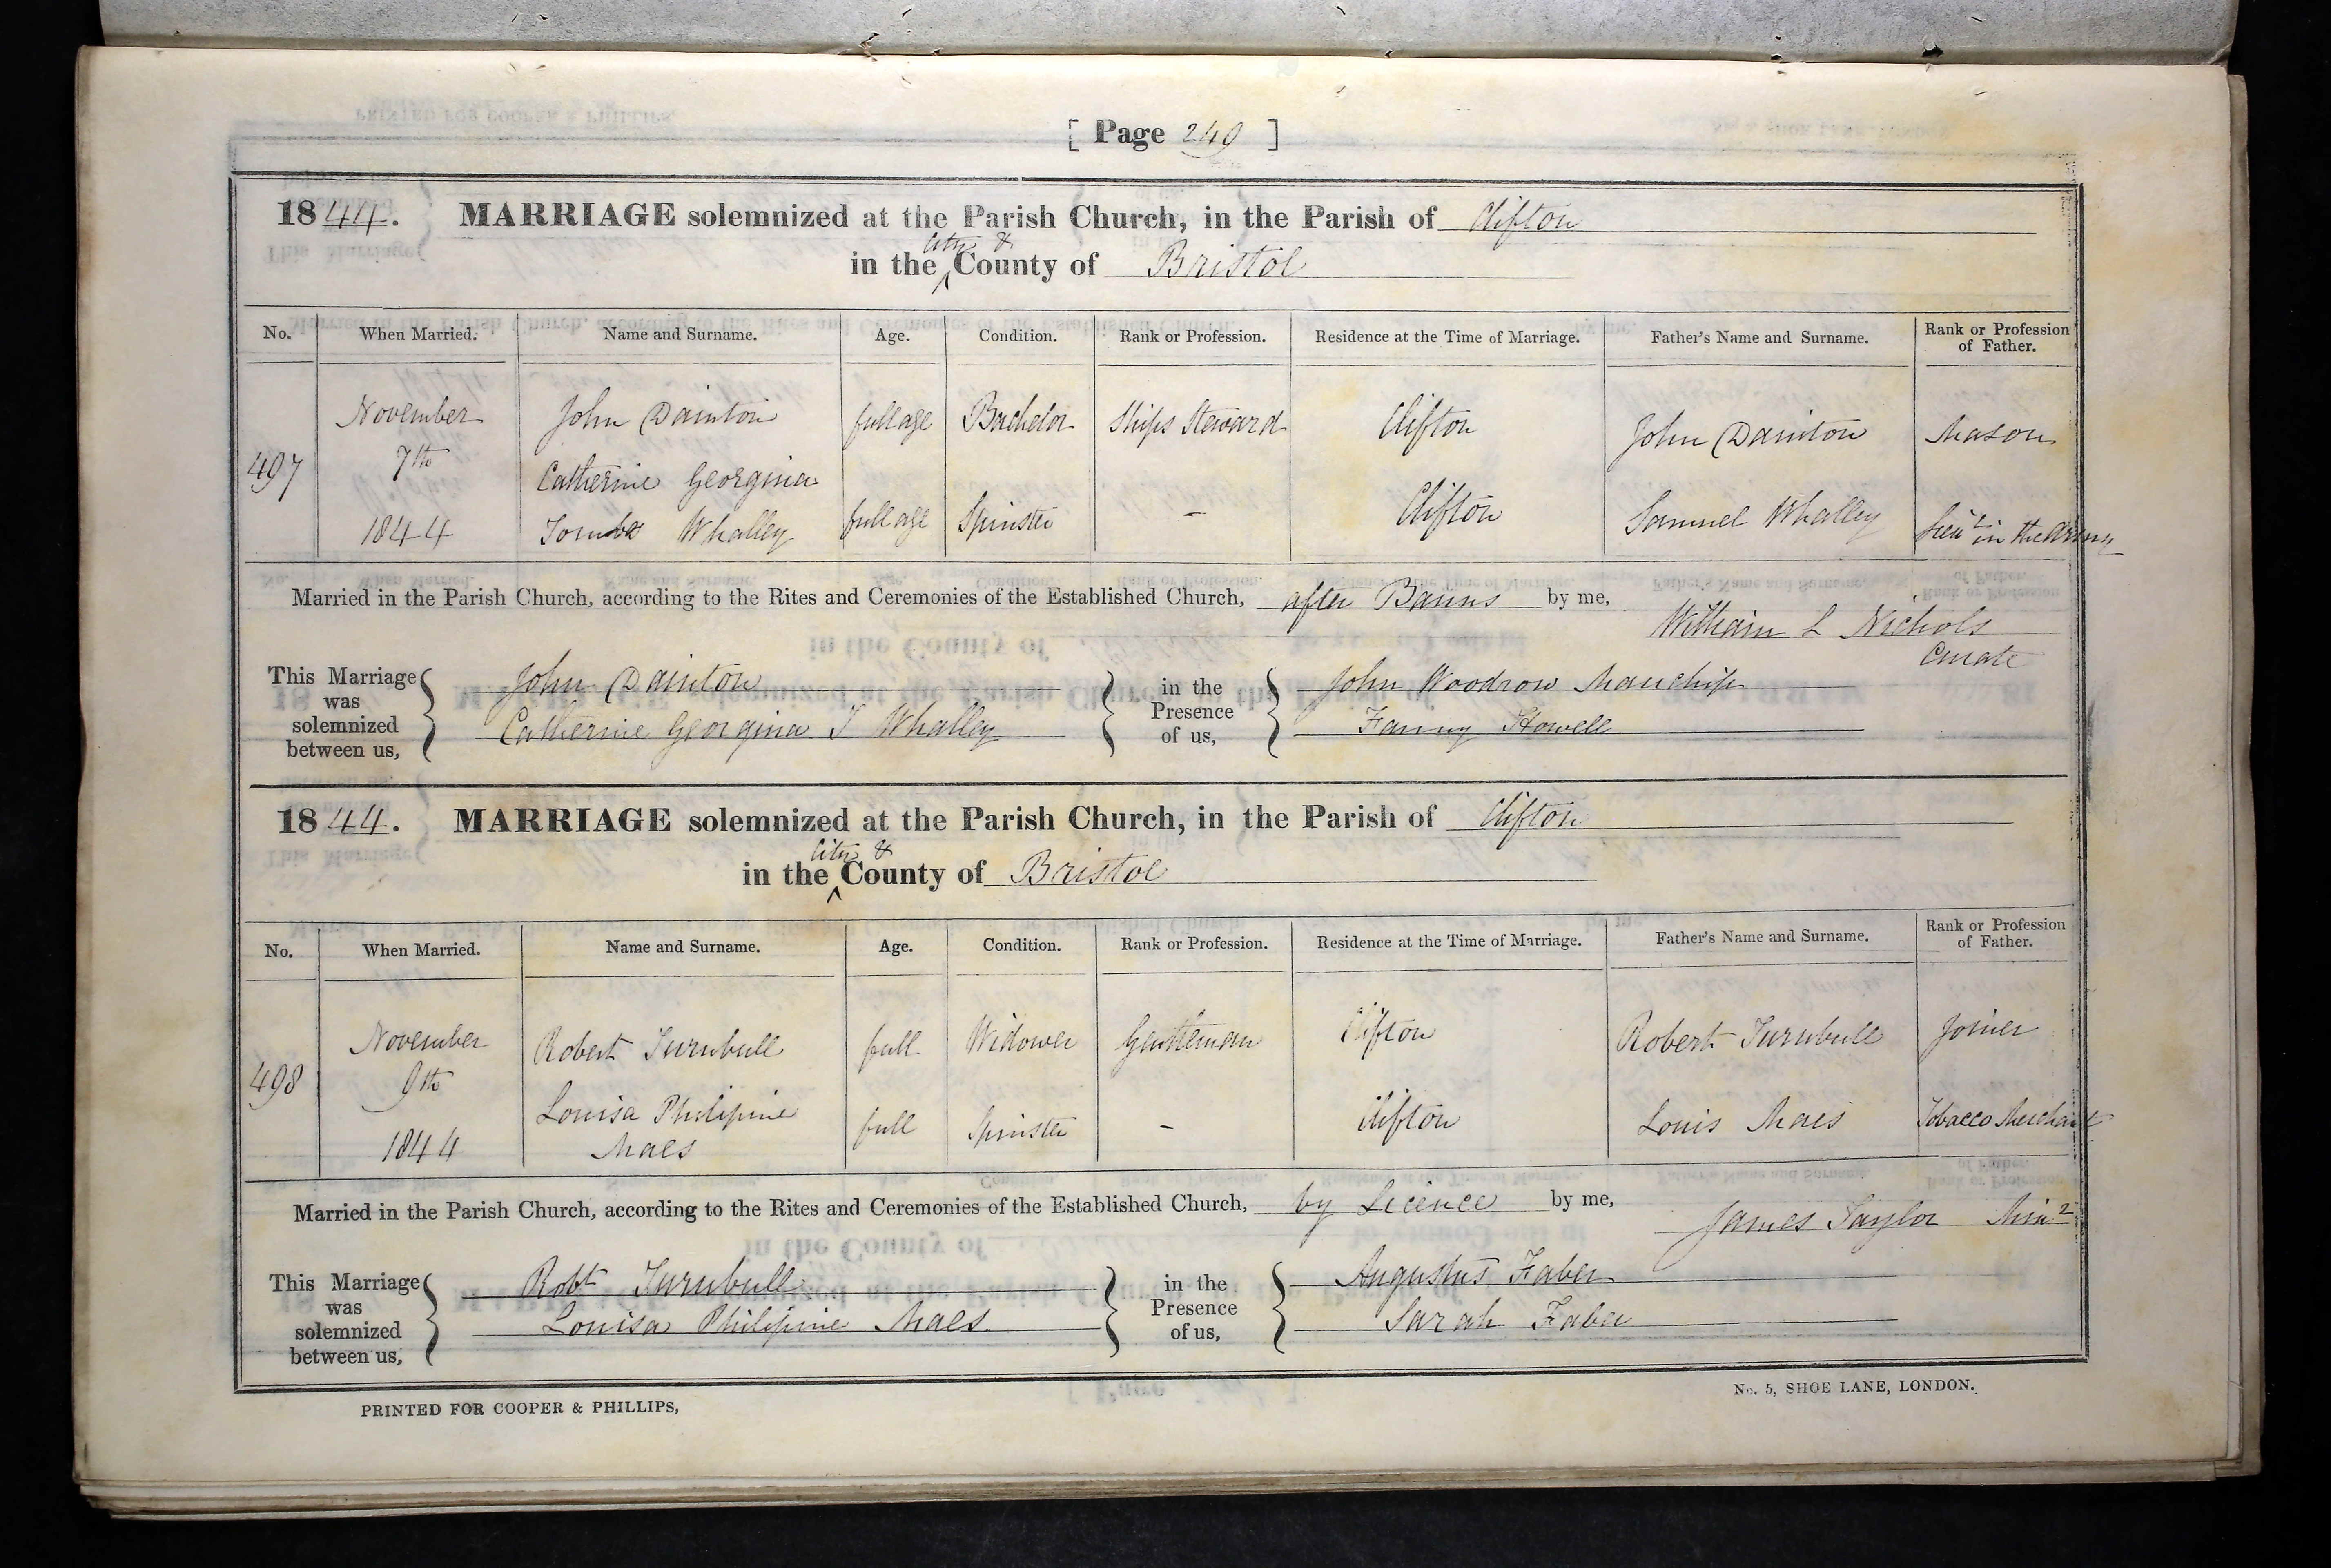 [ Page 249 ]
1844. MARRIAGE solemnized at the Parish Church, in the Parish of Clifton
in the City & County of Bristol
No. When Married. Name and Surname. Age. Condition. Rank or Profession. Residence at the Time of Marriage. Father's Name and Surname. Rank or Profession of Father.
497 November 7th 1844
John Dainton full age Bachelor Ships Steward Clifton John Dainton Mason
Catherine Georgina
Whalley full age Spinster - Clifton Samuel Whalley Lieut in the Army
Married in the Parish Church, according to the Rites and Ceremonies of the Established Church, after Banns by me,
William L Nichols
Curate
This Marriage was solemnized between us,
John Dainton
Catherine Georgina T Whalley
in the Presence of us,
John Woodrow Manchip
Fanny Howell
1844. MARRIAGE solemnized at the Parish Church, in the Parish of Clifton
in the City & County of Bristol
No. When Married. Name and Surname. Age. Condition. Rank or Profession. Residence at the Time of Marriage. Father's Name and Surname. Rank or Profession of Father.
498 November 9th 1844
Robert Turnbull full Widower Gentleman Clifton Robert Turnbull Joiner
Louisa Philipine
Maes full Spinster - Clifton Louis Maes Tobacco Merchant
Married in the Parish Church, according to the Rites and Ceremonies of the Established Church, by Licence by me,
James Taylor Minr
This Marriage was solemnized between us,
Robt Turnbull
Louisa Philipine Maes.
in the Presence of us,
Augustus Faber
Sarah Faber
PRINTED FOR COOPER & PHILLIPS,
No. 5, SHOE LANE, LONDON.